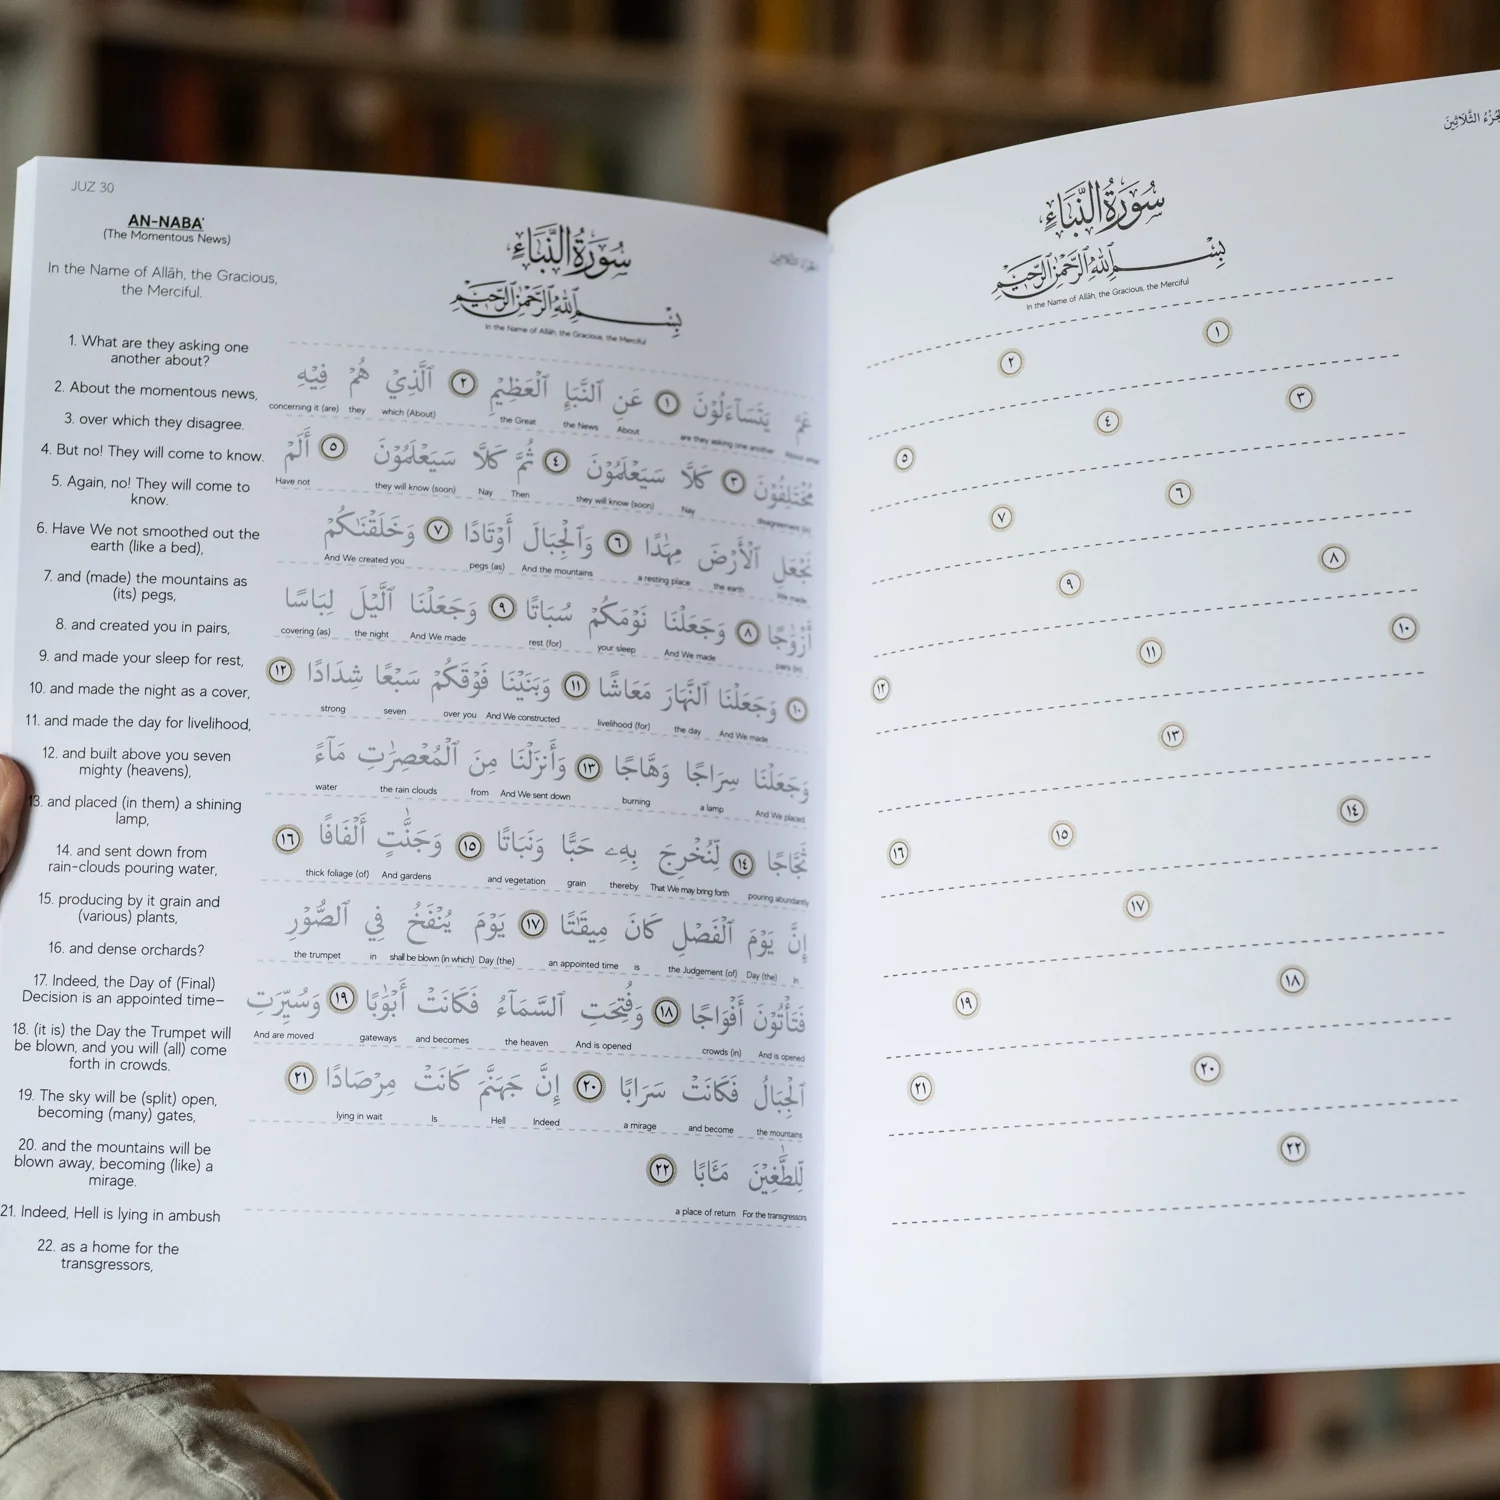 JUZ 30
AN-NABA'
(The Momentous News)
In the Name of Allāh, the Gracious,
the Merciful.
1. What are they asking one
another about?
2. About the momentous news,
3. over which they disagree.
4. But no! They will come to know.
5. Again, no! They will come to
know.
6. Have We not smoothed out the
earth (like a bed),
7. and (made) the mountains as
(its) pegs,
8. and created you in pairs,
9. and made your sleep for rest,
10. and made the night as a cover,
11. and made the day for livelihood,
12. and built above you seven
mighty (heavens),
13. and placed (in them) a shining
lamp,
14. and sent down from
rain-clouds pouring water,
15. producing by it grain and
(various) plants,
16. and dense orchards?
17. Indeed, the Day of (Final)
Decision is an appointed time–
18. (it is) the Day the Trumpet will
be blown, and you will (all) come
forth in crowds.
19. The sky will be (split) open,
becoming (many) gates,
20. and the mountains will be
blown away, becoming (like) a
mirage.
21. Indeed, Hell is lying in ambush
22. as a home for the
transgressors,
الجزء الثلاثين
سُورَةُ النَّبَإِ
بِسْمِ اللَّهِ الرَّحْمَٰنِ الرَّحِيمِ
In the Name of Allāh, the Gracious, the Merciful
عَمَّ يَتَسَآءَلُوْنَ ١ عَنِ ٱلنَّبَإِ ٱلْعَظِيْمِ ٢ ٱلَّذِيْ هُمْ فِيْهِ
concerning it (are) they which (About) the Great the News About are they asking one another About what
مُخْتَلِفُوْنَ ٣ كَلَّا سَيَعْلَمُوْنَ ٤ ثُمَّ كَلَّا سَيَعْلَمُوْنَ ٥ أَلَمْ
Have not they will know (soon) Nay Then they will know (soon) Nay disagreement (in)
نَجْعَلِ ٱلْأَرْضَ مِهَٰدًا ٦ وَٱلْجِبَالَ أَوْتَادًا ٧ وَخَلَقْنَٰكُمْ
And We created you pegs (as) And the mountains a resting place the earth We made
أَزْوَٰجًا ٨ وَجَعَلْنَا نَوْمَكُمْ سُبَاتًا ٩ وَجَعَلْنَا ٱلَّيْلَ لِبَاسًا
covering (as) the night And We made rest (for) your sleep And We made pairs (in)
١٠ وَجَعَلْنَا ٱلنَّهَارَ مَعَاشًا ١١ وَبَنَيْنَا فَوْقَكُمْ سَبْعًا شِدَادًا ١٢
strong seven over you And We constructed livelihood (for) the day And We made
وَجَعَلْنَا سِرَاجًا وَهَّاجًا ١٣ وَأَنزَلْنَا مِنَ ٱلْمُعْصِرَٰتِ مَآءً
water the rain clouds from And We sent down burning a lamp And We placed
ثَجَّاجًا ١٤ لِّنُخْرِجَ بِهِۦ حَبًّا وَنَبَاتًا ١٥ وَجَنَّٰتٍ أَلْفَافًا ١٦
thick foliage (of) And gardens and vegetation grain thereby That We may bring forth pouring abundantly
إِنَّ يَوْمَ ٱلْفَصْلِ كَانَ مِيقَٰتًا ١٧ يَوْمَ يُنْفَخُ فِي ٱلصُّوْرِ
the trumpet in shall be blown (in which) Day (the) an appointed time is the Judgement (of) Day (the) In
فَتَأْتُوْنَ أَفْوَاجًا ١٨ وَفُتِحَتِ ٱلسَّمَآءُ فَكَانَتْ أَبْوَٰبًا ١٩ وَسُيِّرَتِ
And are moved gateways and becomes the heaven And is opened crowds (in) And is opened
ٱلْجِبَالُ فَكَانَتْ سَرَابًا ٢٠ إِنَّ جَهَنَّمَ كَانَتْ مِرْصَادًا ٢١
lying in wait Is Hell Indeed a mirage and become the mountains
لِّلطَّٰغِيْنَ مَـَٔابًا ٢٢
a place of return For the transgressors
الجُزْءُ الثَّلَاثِيْنَ
سُورَةُ النَّبَإِ
بِسْمِ اللَّهِ الرَّحْمَٰنِ الرَّحِيمِ
In the Name of Allāh, the Gracious, the Merciful
١ ٢
٣ ٤ ٥
٦ ٧
٨ ٩
١٠ ١١ ١٢
١٣
١٤ ١٥ ١٦
١٧
١٨ ١٩
٢٠ ٢١
٢٢